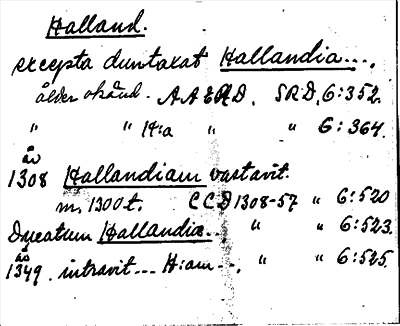 Halland.
excepta duntaxat Hallandia....
ålder okänd. A A E R D, SRD, 6:352.
" " H:a " " 6:364.
år
1308 Hallandiam vastavit.
m. 1300 t. C C D 1308-57 " 6:520
Ducatum Hallandiæ.. " " 6:523.
år
1349. intravit... H:am... " " 6:525.